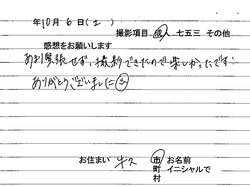 年10月6日(土)
撮影項目 成人 七五三 その他
感想をお願いします
あまり緊張せず、撮影できたので楽しかったです!
ありがとうございました
お住まい 牛久 市 お名前
町 イニシャルで
村